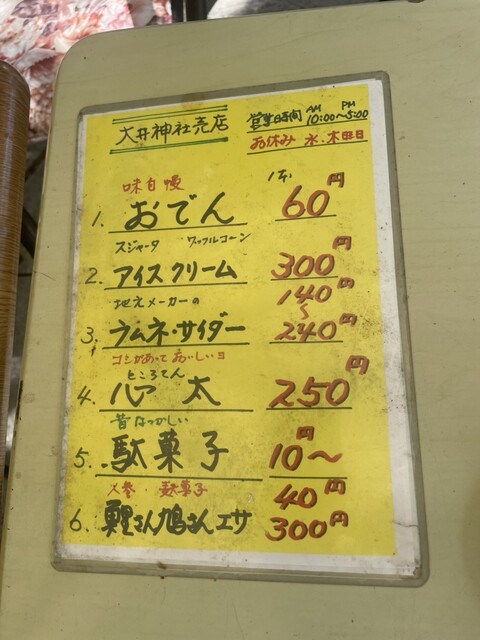 大井神社売店
営業時間 AM 10:00~PM 5:00
お休み 水.木曜日
味自慢
1. おでん 1本 60円
スジャータ ワッフルコーン
2. アイスクリーム 300円
地元メーカーの
3. ラムネ・サイダー 140円~240円
コシがあって おいしい日
ところてん
4. 心太 250円
昔なつかしい
5. 駄菓子 10円~
人参・駄菓子 40円
6. 鯉さん鳩さんエサ 300円